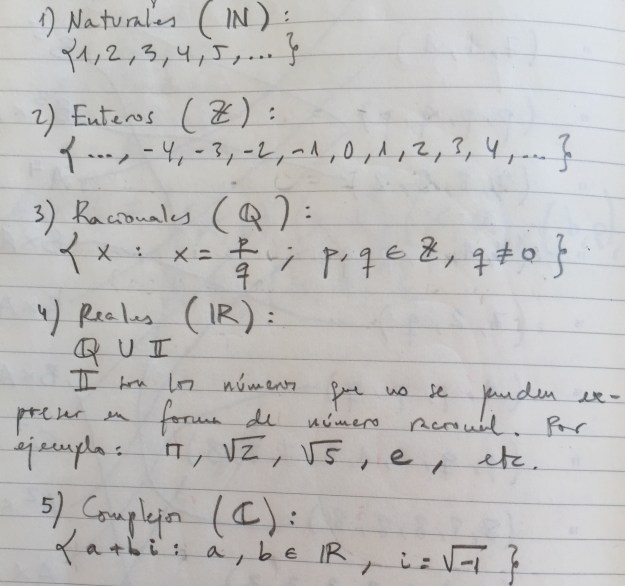 1) Naturales (ℕ):
{1, 2, 3, 4, 5, ... }
2) Enteros (ℤ):
{ ..., -4, -3, -2, -1, 0, 1, 2, 3, 4, ... }
3) Racionales (ℚ):
{ x : x = p/q ; p, q ∈ ℤ, q ≠ 0 }
4) Reales (ℝ):
ℚ ∪ 𝕀
𝕀 son los números que no se pueden ex-
presar en forma de número racional. Por
ejemplo: π, √2, √5, e, etc.
5) Complejos (ℂ):
{ a+bi : a, b ∈ ℝ, i = √-1 }